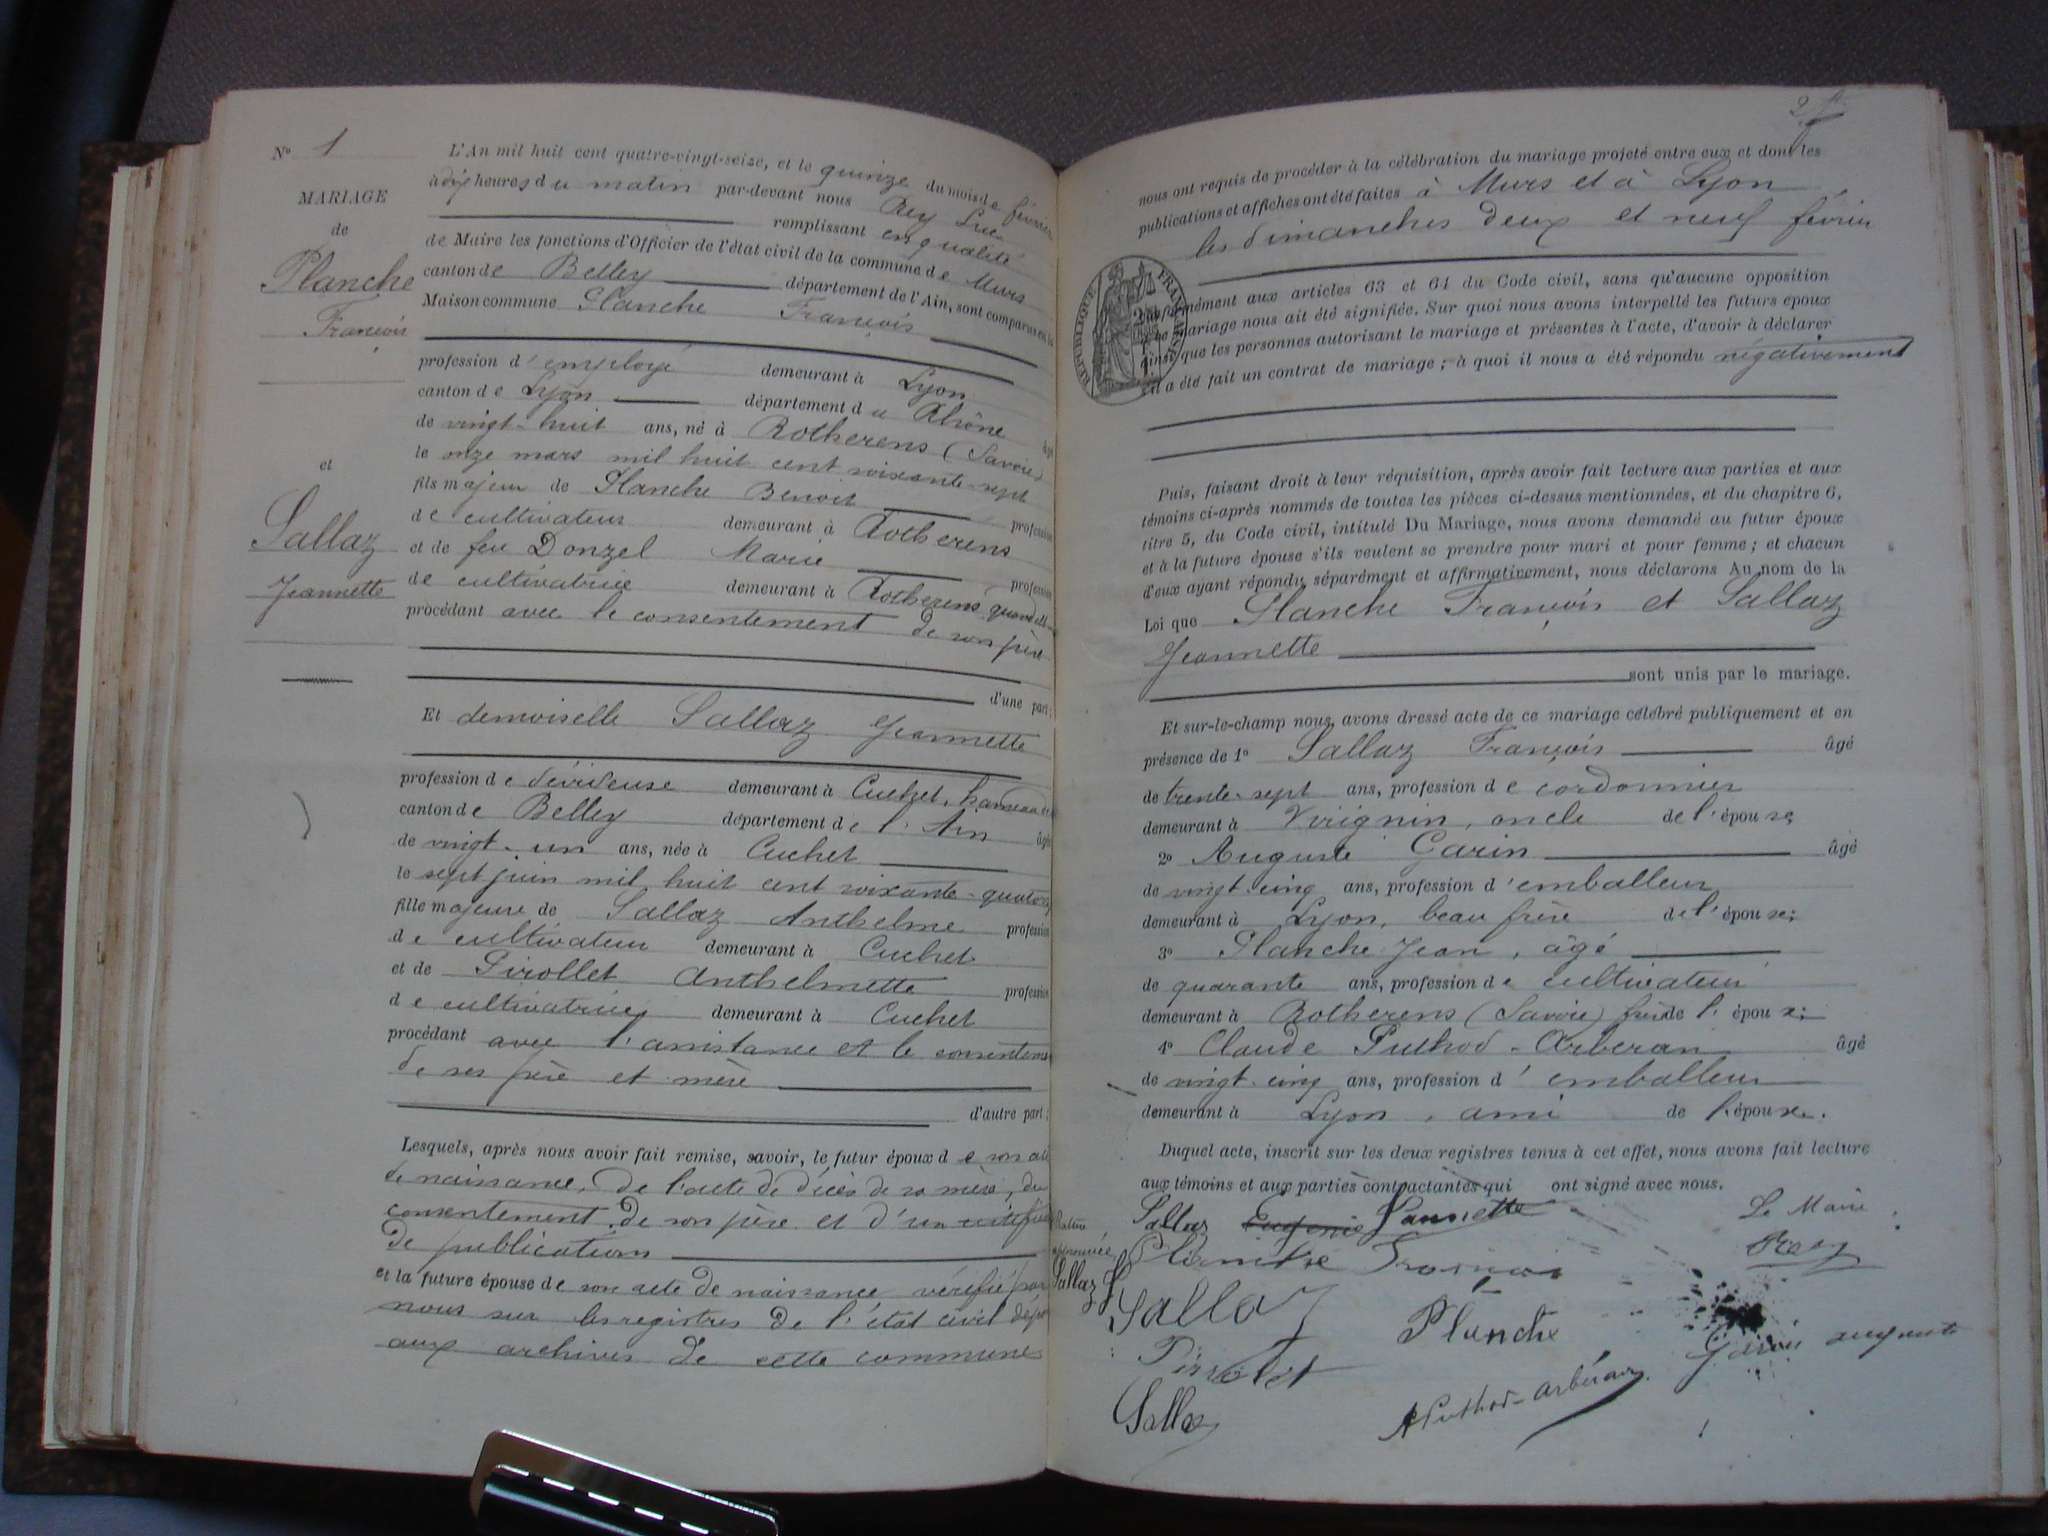 No 1
MARIAGE
de
Planche
François
et
Sallaz
Jeannette
L'An mil huit cent quatre-vingt-seize, et le quinze du mois de février
à dix heures du matin par-devant nous Rey Luc
remplissant en qualité
de Maire les fonctions d'Officier de l'état civil de la commune de Murs
canton de Belley département de l'Ain, sont comparus en la
Maison commune Planche François
profession d'employé demeurant à Lyon
canton de Lyon département du Rhône âgé
de vingt-huit ans, né à Rotherens (Savoie)
le onze mars mil huit cent soixante-sept
fils majeur de Planche Benoit profession
de cultivateur demeurant à Rotherens
et de feu Donzel Marie profession
de cultivatrice demeurant à Rotherens quand
procédant avec le consentement de son père
d'une part;
Et demoiselle Sallaz Jeannette
profession de dévideuse demeurant à Cuchet, hameau de
canton de Belley département de l'Ain âgée
de vingt-un ans, née à Cuchet
le sept juin mil huit cent soixante-quatorze
fille majeure de Sallaz Anthelme profession
de cultivateur demeurant à Cuchet
et de Pirollet Anthelmette profession
de cultivatrice demeurant à Cuchet
procédant avec l'assistance et le consentement
de ses père et mère
d'autre part;
Lesquels, après nous avoir fait remise, savoir, le futur époux de son acte
de naissance, de l'acte de décès de sa mère, du
consentement de son père et d'un certificat
de publication
et la future épouse de son acte de naissance vérifié par
nous sur les registres de l'état civil déposés
aux archives de cette commune
2
nous ont requis de procéder à la célébration du mariage projeté entre eux et dont les
publications et affiches ont été faites à Murs et à Lyon
les dimanches deux et neuf février
RÉPUBLIQUE FRANÇAISE
conformément aux articles 63 et 64 du Code civil, sans qu'aucune opposition
ce mariage nous ait été signifiée. Sur quoi nous avons interpellé les futurs époux
ainsi que les personnes autorisant le mariage et présentes à l'acte, d'avoir à déclarer
s'il a été fait un contrat de mariage; à quoi il nous a été répondu négativement
Puis, faisant droit à leur réquisition, après avoir fait lecture aux parties et aux
témoins ci-après nommés de toutes les pièces ci-dessus mentionnées, et du chapitre 6,
titre 5, du Code civil, intitulé Du Mariage, nous avons demandé au futur époux
et à la future épouse s'ils veulent se prendre pour mari et pour femme; et chacun
d'eux ayant répondu séparément et affirmativement, nous déclarons Au nom de la
Loi que Planche François et Sallaz
Jeannette
sont unis par le mariage.
Et sur-le-champ nous avons dressé acte de ce mariage célébré publiquement et en
présence de 1o Sallaz François âgé
de trente-sept ans, profession de cordonnier
demeurant à Virignin, oncle de l'épouse;
2o Auguste Garin âgé
de vingt-cinq ans, profession d'emballeur
demeurant à Lyon, beau frère de l'épouse;
3o Planche Jean, âgé
de quarante ans, profession de cultivateur
demeurant à Rotherens (Savoie) frère de l'époux;
4o Claude Puthod-Arberan âgé
de vingt-cinq ans, profession d'emballeur
demeurant à Lyon, ami de l'épouse.
Duquel acte, inscrit sur les deux registres tenus à cet effet, nous avons fait lecture
aux témoins et aux parties contractantes qui ont signé avec nous.
Sallaz Eugenie Jannette
Le Maire
Rey
Planche François
approuvée
Sallaz
Sallaz
Planche
Garin auguste
Pirolet
Puthod-arberan
Sallaz